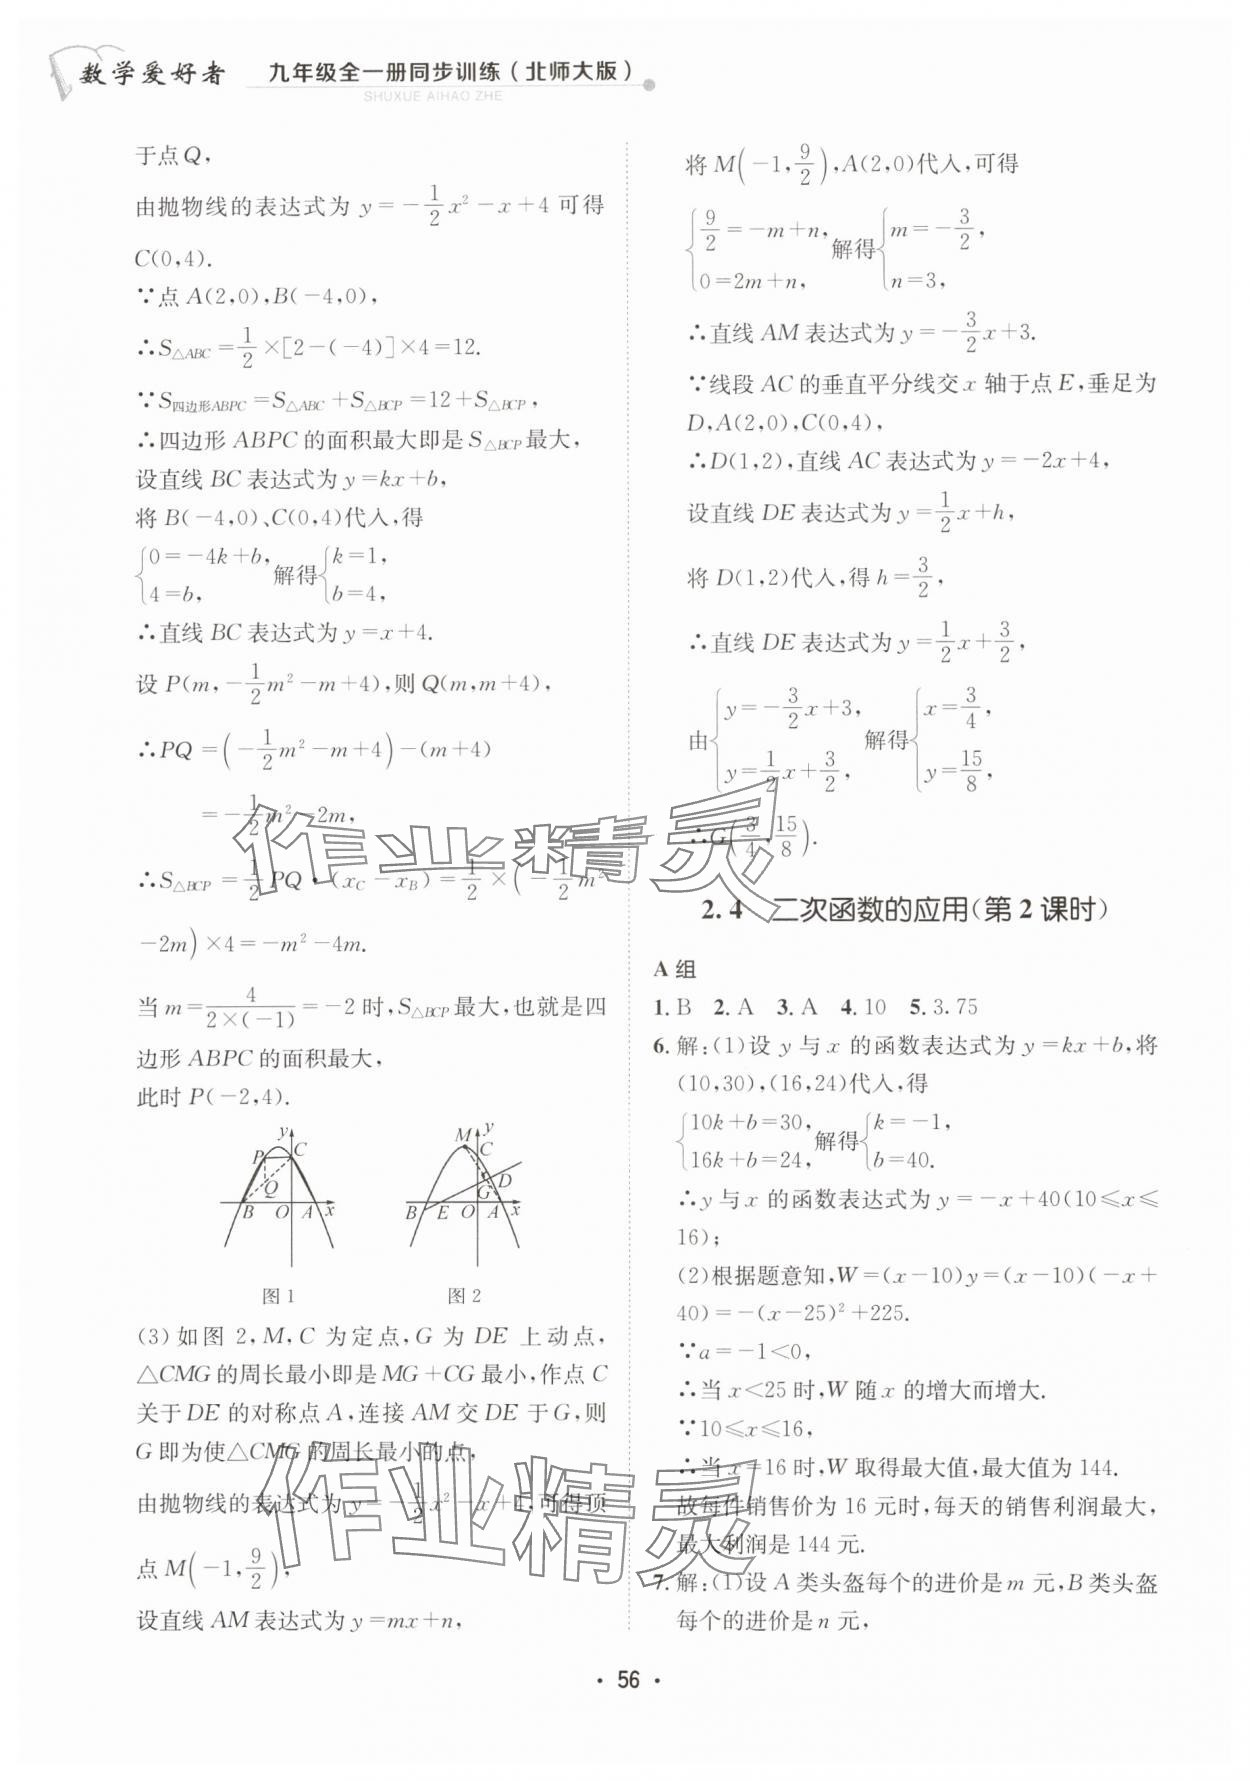 数学爱好者 九年级全一册同步训练(北师大版)
SHUXUE AIHAO ZHE
于点Q,
由抛物线的表达式为 y=-1/2x²-x+4 可得
C(0,4).
∵点 A(2,0),B(-4,0),
∴S△ABC=1/2×[2-(-4)]×4=12.
∵S四边形ABPC=S△ABC+S△BCP=12+S△BCP,
∴四边形 ABPC 的面积最大即是 S△BCP最大,
设直线 BC 表达式为 y=kx+b,
将 B(-4,0)、C(0,4)代入,得
{0=-4k+b, 4=b, 解得{k=1, b=4,
∴直线 BC 表达式为 y=x+4.
设 P(m,-1/2m²-m+4),则 Q(m,m+4),
∴PQ=(-1/2m²-m+4)-(m+4)
=-1/2m²-2m,
∴S△BCP=1/2PQ·(xC-xB)=1/2×(-1/2m²
-2m)×4=-m²-4m.
当 m=4/(2×(-1))=-2 时,S△BCP最大,也就是四
边形 ABPC 的面积最大,
此时 P(-2,4).
y P C Q B O A x
M y C D G B E O A x
图1 图2
(3)如图 2,M,C 为定点,G 为 DE 上动点,
△CMG 的周长最小即是 MG+CG 最小,作点 C
关于 DE 的对称点 A,连接 AM 交 DE 于 G,则
G 即为使△CMG 的周长最小的点,
由抛物线的表达式为 y=-1/2x²-x+4,可得顶
点 M(-1,9/2),
设直线 AM 表达式为 y=mx+n,
将 M(-1,9/2),A(2,0)代入,可得
{9/2=-m+n, 0=2m+n, 解得{m=-3/2, n=3,
∴直线 AM 表达式为 y=-3/2x+3.
∵线段 AC 的垂直平分线交 x 轴于点 E,垂足为
D,A(2,0),C(0,4),
∴D(1,2),直线 AC 表达式为 y=-2x+4,
设直线 DE 表达式为 y=1/2x+h,
将 D(1,2)代入,得 h=3/2,
∴直线 DE 表达式为 y=1/2x+3/2,
由{y=-3/2x+3, y=1/2x+3/2, 解得{x=3/4, y=15/8,
∴G(3/4,15/8).
2.4 二次函数的应用(第2课时)
A 组
1. B 2. A 3. A 4. 10 5. 3.75
6. 解:(1)设 y 与 x 的函数表达式为 y=kx+b,将
(10,30),(16,24)代入,得
{10k+b=30, 16k+b=24, 解得{k=-1, b=40.
∴y 与 x 的函数表达式为 y=-x+40(10≤x≤
16);
(2)根据题意知,W=(x-10)y=(x-10)(-x+
40)=-(x-25)²+225.
∵a=-1<0,
∴当 x<25 时,W 随 x 的增大而增大.
∵10≤x≤16,
∴当 x=16 时,W 取得最大值,最大值为 144.
故每件销售价为 16 元时,每天的销售利润最大,
最大利润是 144 元.
7. 解:(1)设 A 类头盔每个的进价是 m 元,B 类头盔
每个的进价是 n 元,
作业精灵
作业精灵
· 56 ·